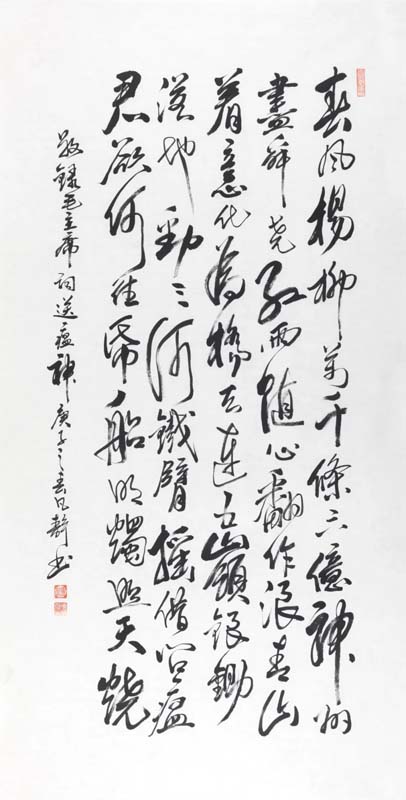 春風楊柳萬千條六億神州
盡舜堯紅雨隨心翻作浪青山
着意化為橋天連五嶺銀鋤
落地動三河鐵臂摇借問瘟
君欲何往紙船明燭照天燒
敬録毛主席詞送瘟神庚子之春書